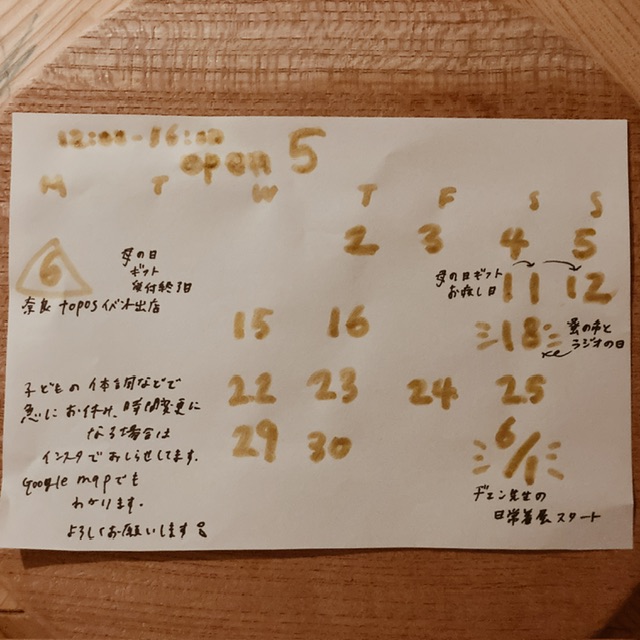 12:00-16:00
open 5
M T W T F S S
2 3 4 5
6
母の日
ギフト
受付終了日
奈良 toposイベント出店
母の日ギフト
お渡し日
11 12
15 16 18
蚤の市と
ラジオの日
22 23 24 25
29 30 6/1
子どもの体調などで
急にお休み、時間変更に
なる場合は
インスタでおしらせしてます。
Google mapでも
わかります。
よろしくお願いします
先生の
日常着展スタート